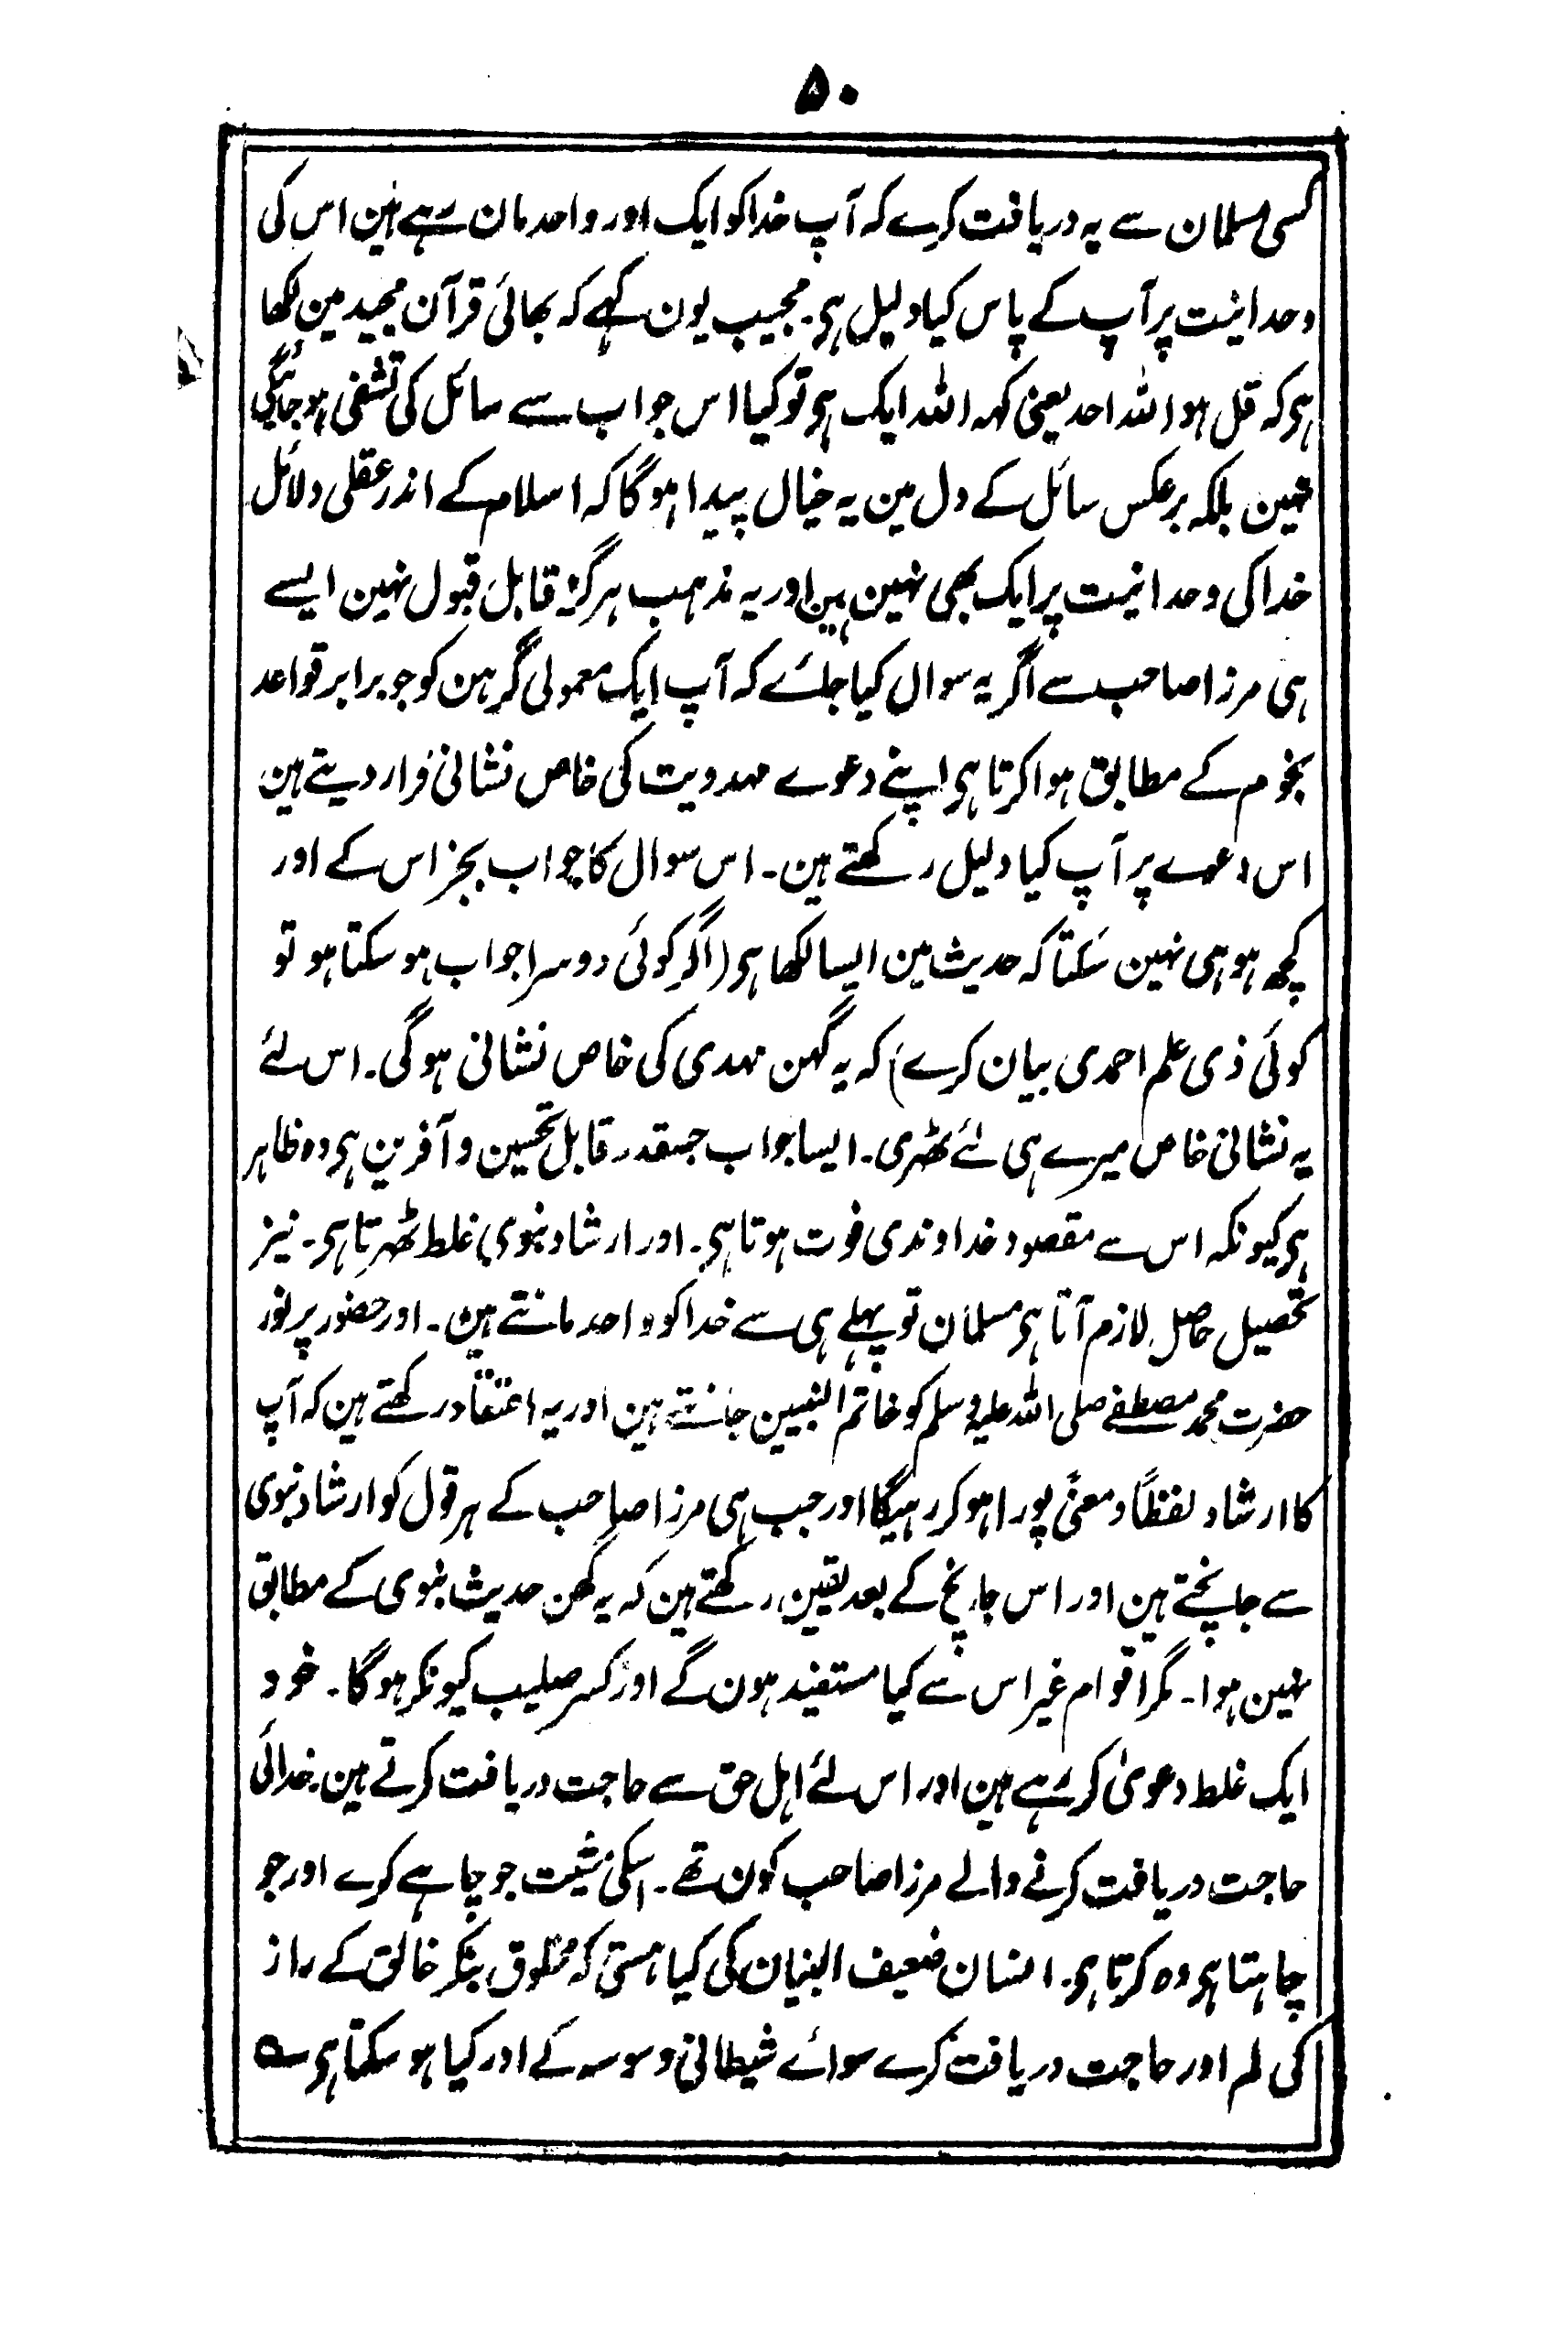 ۵۰
کسی مسلمان سے یہ دریافت کرے کہ آپ خدا کو ایک اور واحد مان رہے ہین اس کی
وحدانیت پر آپ کے پاس کیا دلیل ہی۔ مجیب یون کہے کہ بھائی قرآن مجید مین لکھا
ہی کہ قل ہو اللہ احد یعنی کہہ اللہ ایک ہی تو کیا اس جواب سے سائل کی تشفی ہو جائیگی
نہین بلکہ برعکس سائل کے دل مین یہ خیال پیدا ہوگا کہ اسلام کے اندر عقلی دلائل
خدا کی وحدانیت پر ایک بھی نہین ہین اور یہ مذہب ہرگز قابل قبول نہین ایسے
ہی مرزا صاحب سے اگر یہ سوال کیا جائے کہ آپ ایک معمولی گرہن کو جو برابر قواعد
نجوم کے مطابق ہوا کرتا ہی اپنے دعوے مہدویت کی خاص نشانی قرار دیتے ہین
اس دعوے پر آپ کیا دلیل رکھتے ہین۔ اس سوال کا جواب بجز اس کے اور
کچھ ہو ہی نہین سکتا کہ حدیث مین ایسا لکھا ہی (اگر کوئی دوسرا جواب ہو سکتا ہو تو
کوئی ذی علم احمدی بیان کرے) کہ یہ گہن مہدی کی خاص نشانی ہوگی۔ اس لئے
یہ نشانی خاص میرے ہی لئے ٹھہری۔ ایسا جواب جسقدر قابل تحسین و آفرین ہی وہ ظاہر
ہی کیونکہ اس سے مقصود خداوندی فوت ہوتا ہی۔ اور ارشاد نبوی غلط ٹھہرتا ہی۔ نیز
تحصیل حاصل لازم آتا ہی مسلمان تو پہلے ہی سے خدا کو واحد مانتے ہین۔ اور حضور پر نور
حضرت محمد مصطفے صلی اللہ علیہ وسلم کو خاتم النبیین جانتے ہین اور یہ اعتقاد رکھتے ہین کہ آپ
کا ارشاد لفظاً و معنیً پورا ہو کر رہیگا اور جب ہی مرزا صاحب کے ہر قول کو ارشاد نبوی
سے جانچتے ہین اور اس جانچ کے بعد یقین رکھتے ہین کہ یہ گھن حدیث نبوی کے مطابق
نہین ہوا۔ مگر اقوام غیر اس سے کیا مستفید ہون گے اور کسر صلیب کیونکر ہوگا۔ خود
ایک غلط دعویٰ کر رہے ہین اور اس لئے اہل حق سے حاجت دریافت کرتے ہین۔ خدائی
حاجت دریافت کرنے والے مرزا صاحب کون تھے۔ اسکی مشیت جو چاہے کرے اور جو
چاہتا ہی وہ کرتا ہی۔ انسان ضعیف البنیان کی کیا ہستی کہ مخلوق بنکر خالق کے راز
کی لم اور حاجت دریافت کرے سوائے شیطانی وسوسہ کے اور کیا ہو سکتا ہی ؎